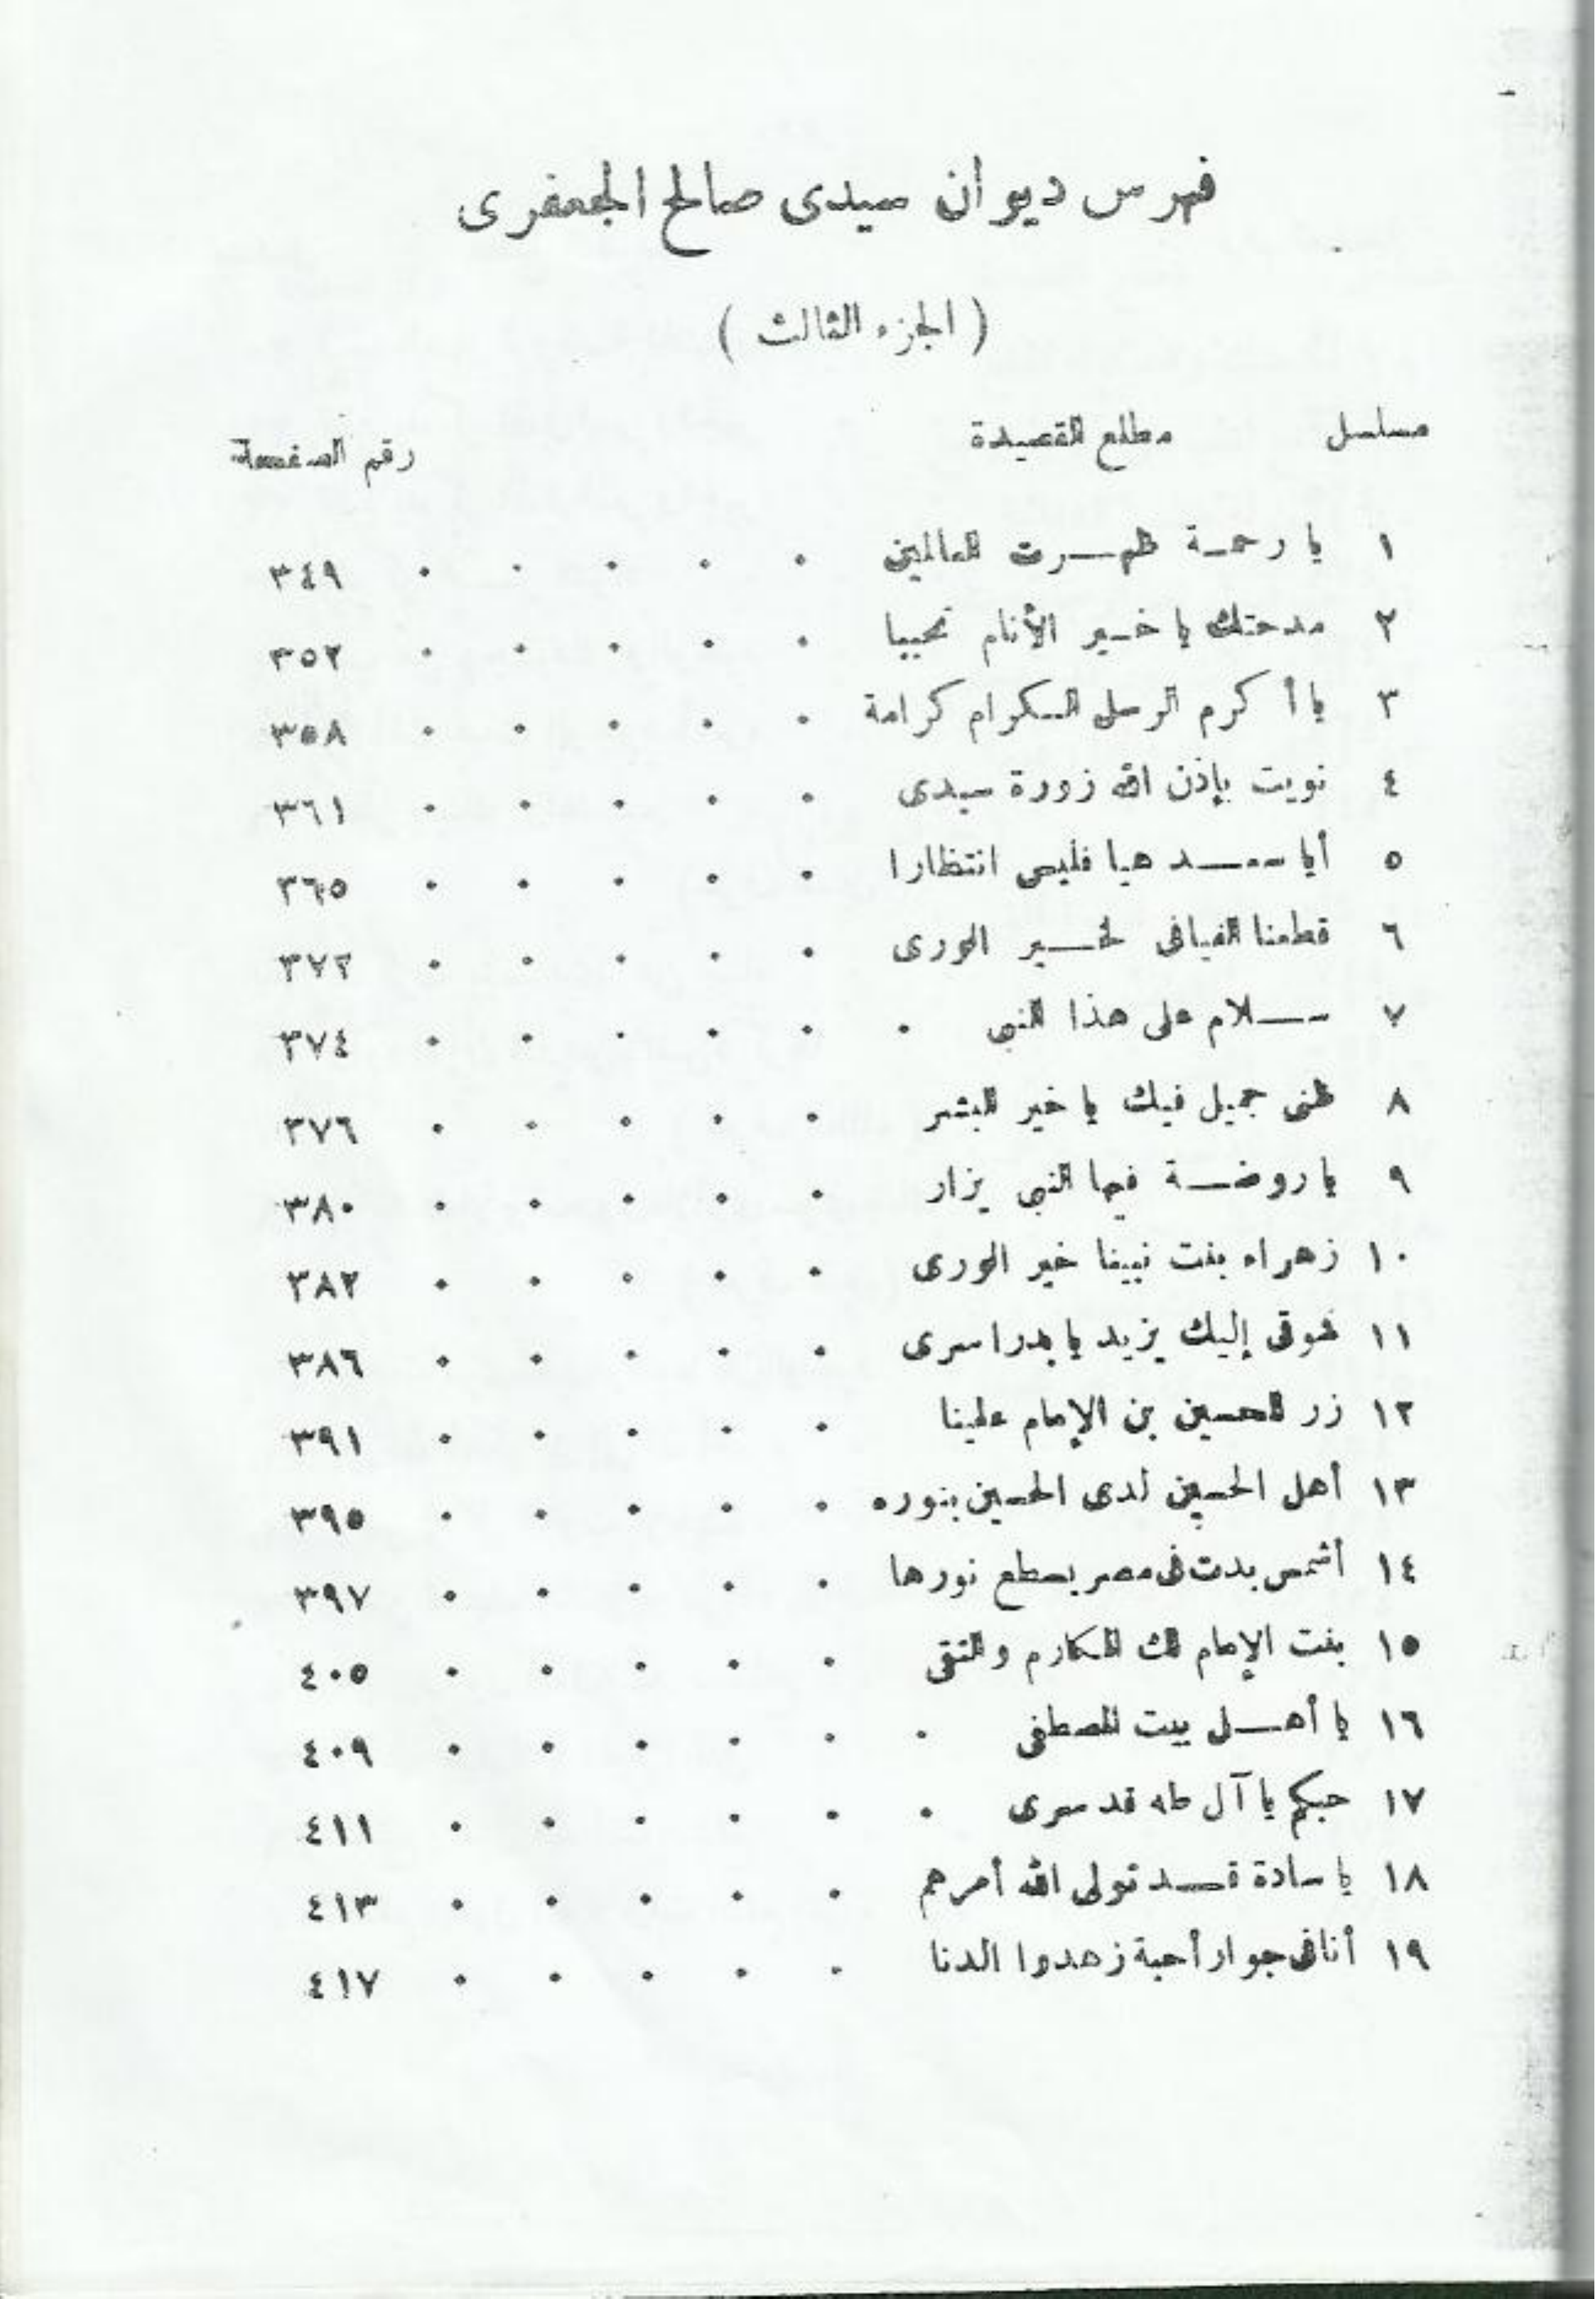 فهرس ديوان سيدى صالح الجعفرى
( الجزء الثالث )
مسلسل مطلع القصيدة رقم الصفحة
١ يا رحمـة ظهـــرت للعالمين . . . . . ٣٤٩
٢ مدحتك يا خـير الأنام تحببا . . . . . ٣٥٢
٣ يا أكرم الرسل الكرام كرامة . . . . . ٣٥٨
٤ نويت بإذن الله زورة سيدى . . . . . ٣٦١
٥ أيا سعــــد هيا فليس انتظارا . . . . . ٣٦٥
٦ قطعنا الفيافى لخـــير الورى . . . . . ٣٧٢
٧ ســـلام على هذا النبى . . . . . . ٣٧٤
٨ ظنى جميل فيك يا خير البشر . . . . . ٣٧٦
٩ يا روضـــة فيها النبى يزار . . . . . ٣٨٠
١٠ زهراء بنت نبينا خير الورى . . . . . ٣٨٢
١١ شوقى إليك يزيد يا بدرا سرى . . . . . ٣٨٦
١٢ زر للحسين بن الإمام علينا . . . . . ٣٩١
١٣ أهل الحسين لدى الحسين بنوره . . . . . ٣٩٥
١٤ أشمس بدت فى مصر يسطع نورها . . . . . ٣٩٧
١٥ بنت الإمام لك المكارم والتقى . . . . . ٤٠٥
١٦ يا أهـــل بيت المصطفى . . . . . . ٤٠٩
١٧ حبكم يا آل طه قد سرى . . . . . . ٤١١
١٨ يا سادة قـــد تولى الله أمرهم . . . . . ٤١٣
١٩ أنا فى جوار أحبة زهدوا الدنا . . . . . ٤١٧